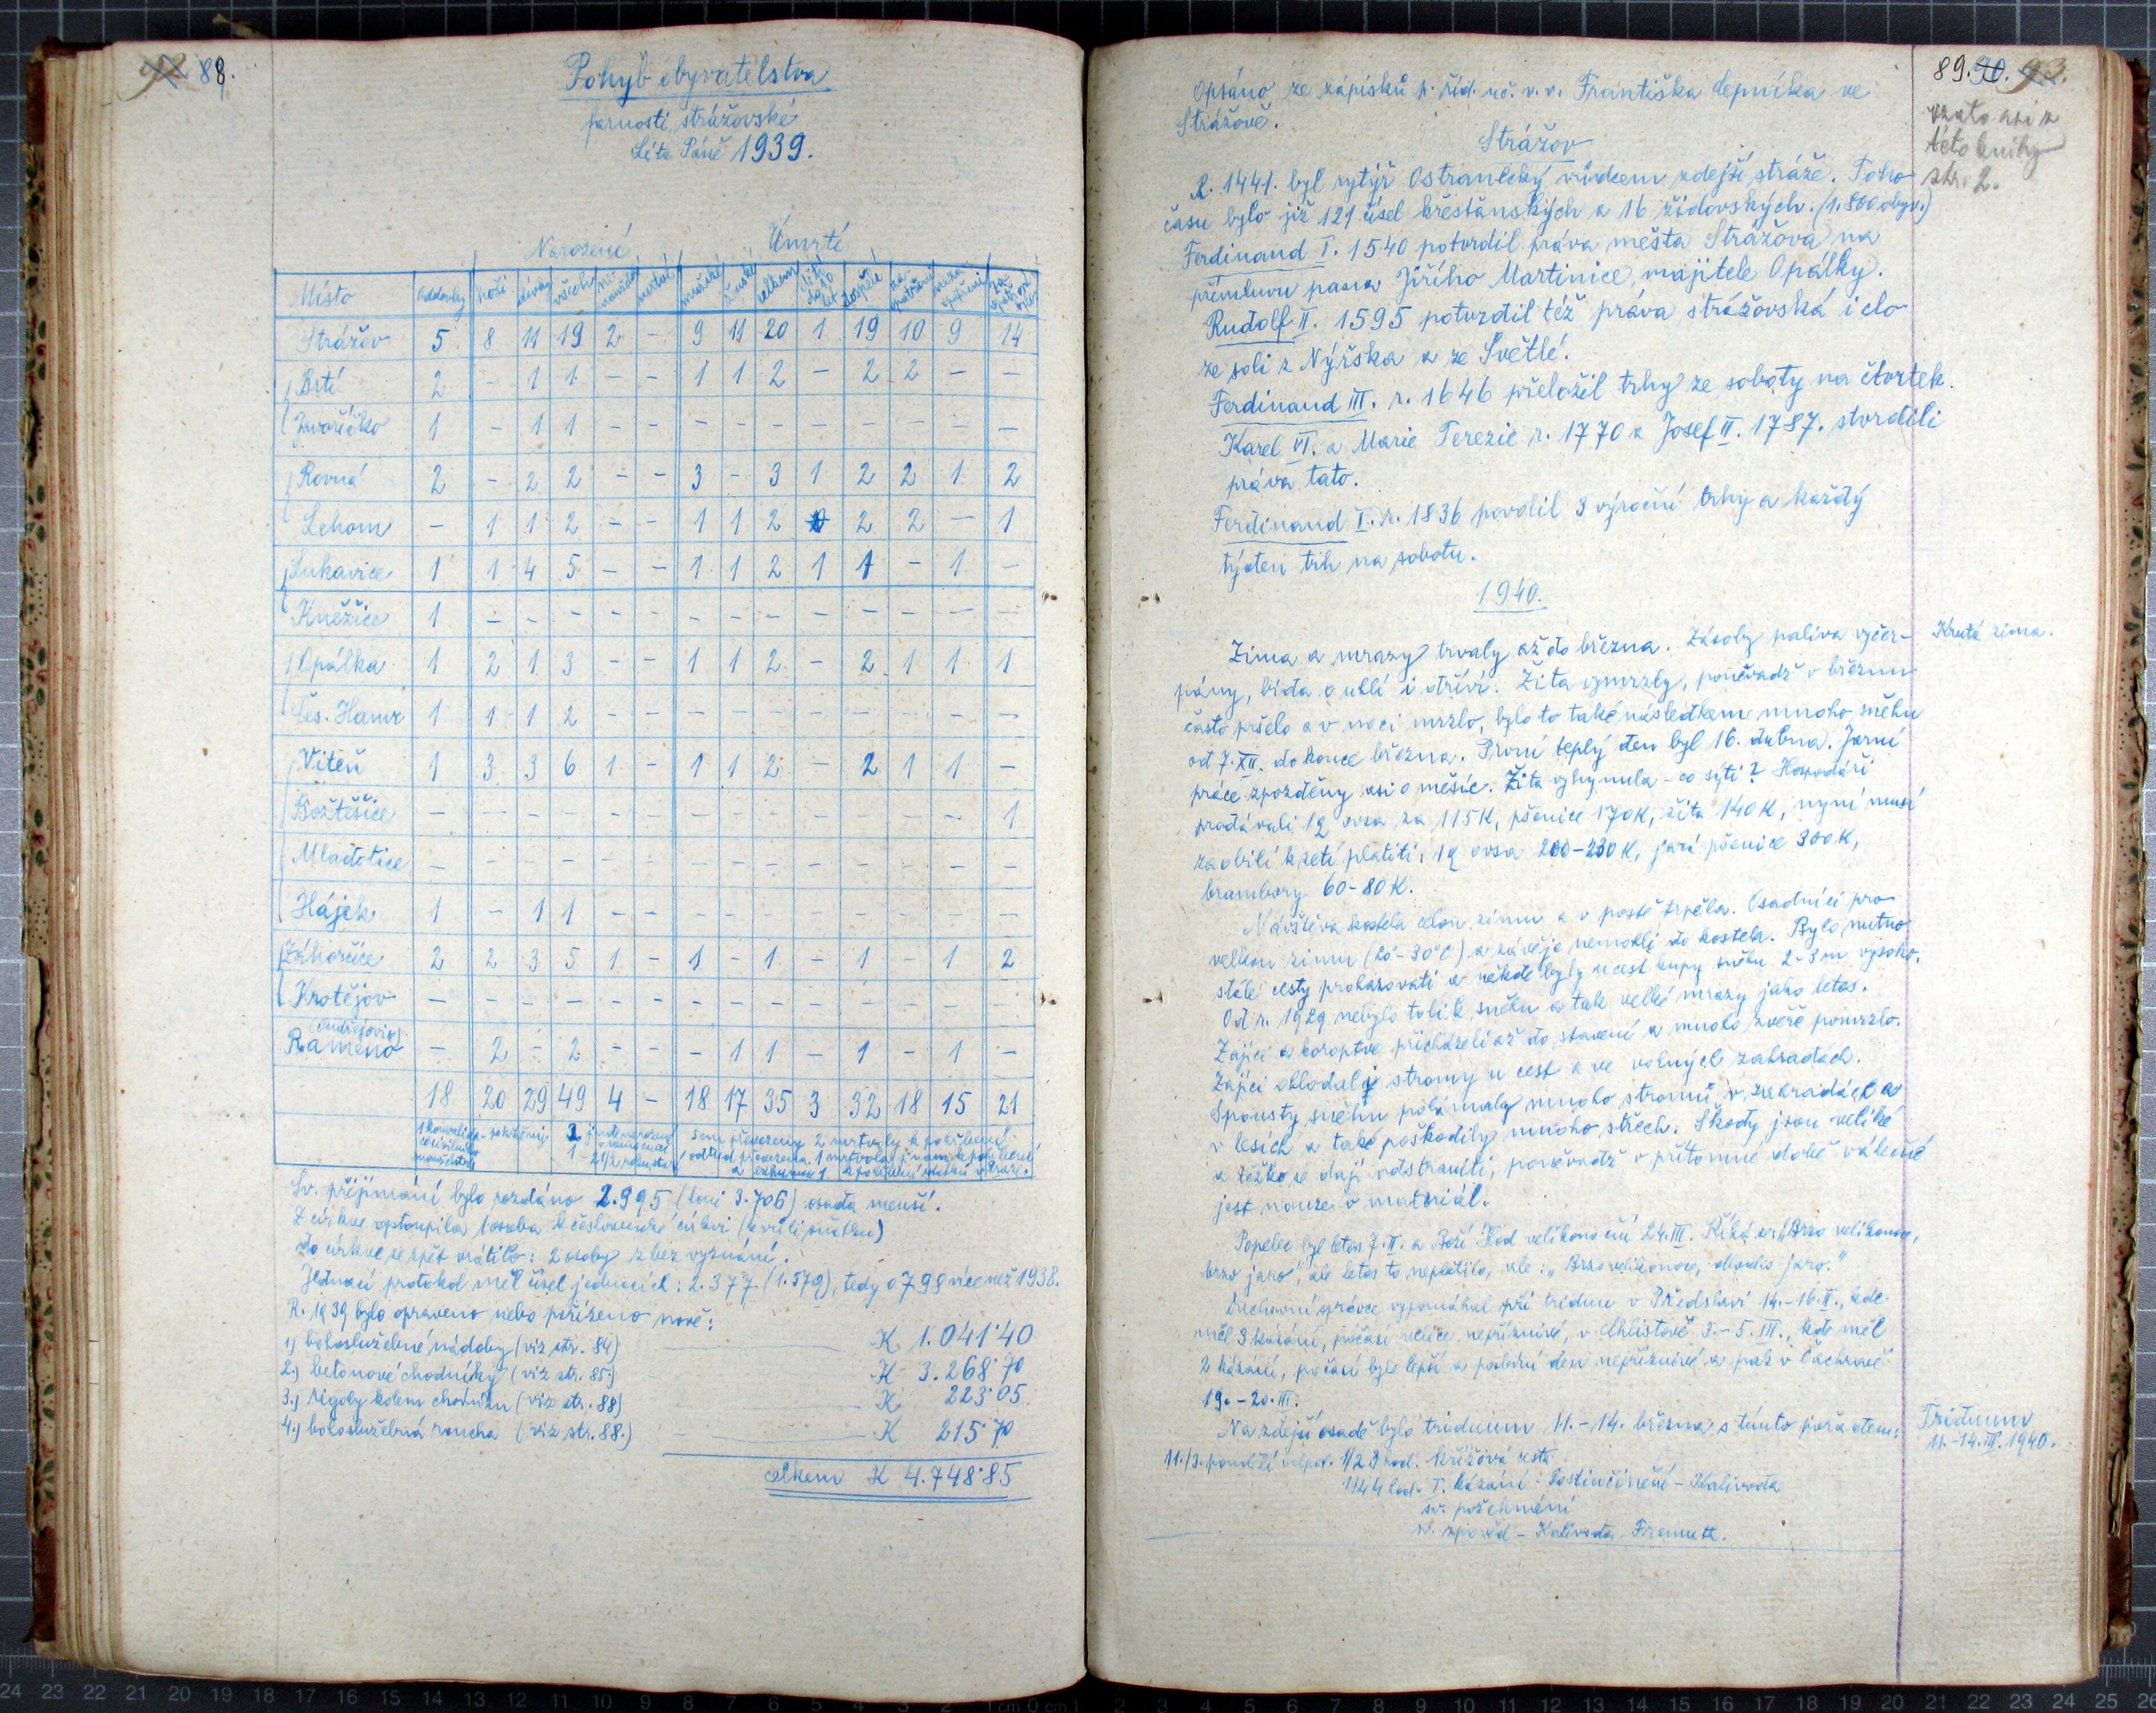 88.
Pohyb obyvatelstva
farnosti strážovské
Léta Páně 1939.
Narození Úmrtí
Místo oddavky hoši dívky všech ne-manželsk. mrtvě mužské ženské celkem děti do 10 let dospělí za-opatřeni neza-opatřeni
Strážov 5 8 11 19 2 - 9 11 20 1 19 10 9 14
Brtí 2 - 1 1 - - 1 1 2 - 2 2 - -
Javoříčko 1 - 1 1 - - - - - - - - - -
Rovná 2 - 2 2 - - 3 - 3 1 2 2 1 2
Lehom - 1 1 2 - - 1 1 2 2 2 - 1
Lukavice 1 1 4 5 - - 1 1 2 1 1 - 1 -
Kněžice 1 - - - - - - - - - - - - -
Opálka 1 2 1 3 - - 1 1 2 - 2 1 1 1
Čes. Hamr 1 1 1 2 - - - - - - - - - -
Viteň 1 3 3 6 1 - 1 1 2 - 2 1 1 -
Božtěšice - - - - - - - - - - - - - 1
Mladotice - - - - - - - - - - - - - -
Hájek 1 - 1 1 - - - - - - - - - -
Záhorčice 2 2 3 5 1 - 1 - 1 - 1 - 1 2
Krotějov - - - - - - - - - - - - - -
(Ondřejovic)
Rameno - 2 - 2 - - - 1 1 - 1 - 1 -
18 20 29 49 4 - 18 17 35 3 32 18 15 21
1 konvalidace civilního manželství - pokřtěný jinde narozený sem převezeny 2 mrtvoly k pohřbení
odtud převezena 1 mrtvola jinam k pohřbení
a exhumace 1
Sv. přijímání bylo rozdáno 2.995 (loni 3.706) osada menší.
Z církve vystoupila 1 osoba k českomor. církvi (k vůli sňatku)
do církve se zpět vrátilo: 2 osoby z bez vyznání.
Jednací protokol měl čísel jednacích: 2.377 (1.579), tedy o 798 více než 1938.
R. 1939 bylo opraveno nebo pořízeno nově:
1) bohoslužebné nádoby (viz str. 84) K 1.041'40
2.) betonové chodníky (viz str. 85) K 3.268'70
3.) rigoly kolem chodníku (viz str. 88) K 223'05
4.) bohoslužebná roucha (viz str. 88.) K 215'70
celkem K 4.748'85
89. 90. 93.
vzato asi z
této knihy
str. 2.
Opsáno ze zápisků p. říd. uč. v. v. Františka Lepníka ve
Strážově.
Strážov
R. 1441. byl rytýř Ostranický vůdcem zdejší stráže. Toho
času bylo již 121 čísel křesťanských a 16 židovských. (1.800 obyv.)
Ferdinand I. 1540 potvrdil práva mešta Strážova na
přímluvu pana Jiřího Martinice, majitele Opálky.
Rudolf II. 1595 potvrdil též práva strážovská i clo
ze soli z Nýrška a ze Světlé.
Ferdinand III. r. 1646 přeložil trhy ze soboty na čtvrtek.
Karel VI. a Marie Terezie r. 1770 a Josef II. 1787. stvrdili
práva tato.
Ferdinand I. r. 1836 povolil 3 výroční trhy a každý
týden trh na sobotu.
1940.
Krutá zima.
Zima a mrazy trvaly až do března. Zásoby paliva vyčer-
pány, bída o uhlí i dříví. Žita vymrzly, poněvadž v březnu
často pršelo a v noci mrzlo, bylo to také následkem mnoho sněhu
od 7. XII. do konce března. První teplý den byl 16. dubna. Jarní
práce zpožděny asi o měsíc. Žita vyhynula - co sytí? Hospodáři
prodávali 1q ovsa za 115K, pšenice 170K, žita 140K, nyní musí
za obilí k setí platiti: 1q ovsa 200-230 K, jarí pšenice 300K,
brambory 60-80K.
Návštěva kostela celou zimu a v postě trpěla. Osadníci pro
velkou zimu (20°-30°C) a závěje nemohli do kostela. Bylo nutno
stále cesty prohazovati a někde byly u cest kupy sněhu 2-3 m vysoko.
Od r. 1929 nebylo tolik sněhu a tak velké mrazy jako letos.
Zajíci a koroptve přicházeli až do stavení a mnoho zvěře pomrzlo.
Zajíci ohlodali stromy u cest a ve volných zahradách.
Spousty sněhu polámaly mnoho stromů v zahradách a
v lesích a také poškodily mnoho střech. Škody jsou veliké
a těžko se dají odstraniti, poněvadž v přítomné době válečné
jest nouze o materiál.
Popelec byl letos 7. II. a Boží Hod velikonoční 24. III. Říká se: "Brzo velikonoce,
brzo jaro", ale letos to neplatilo, ale: "Brzo velikonoce, dlouho jaro."
Duchovní správce vypomáhal při triduu v Předslavi 14.-16. II., kde
měl 3 kázání, počasí velice nepříznivé, v Chlistově 3.-5. III., kde měl
2 kázání, počasí bylo lepší a poslední den nepříznivé a pak v Čachrově
19.-20. III.
Triduum
11.-14. III. 1940.
Na zdejší osadě bylo triduum 11.-14. března s tímto pořadem:
11./3. pondělí odpol. 1/2 3 hod. křížová cesta
I. kázání - Kalivoda
sv. požehnání
sv. zpověď - Kalivoda